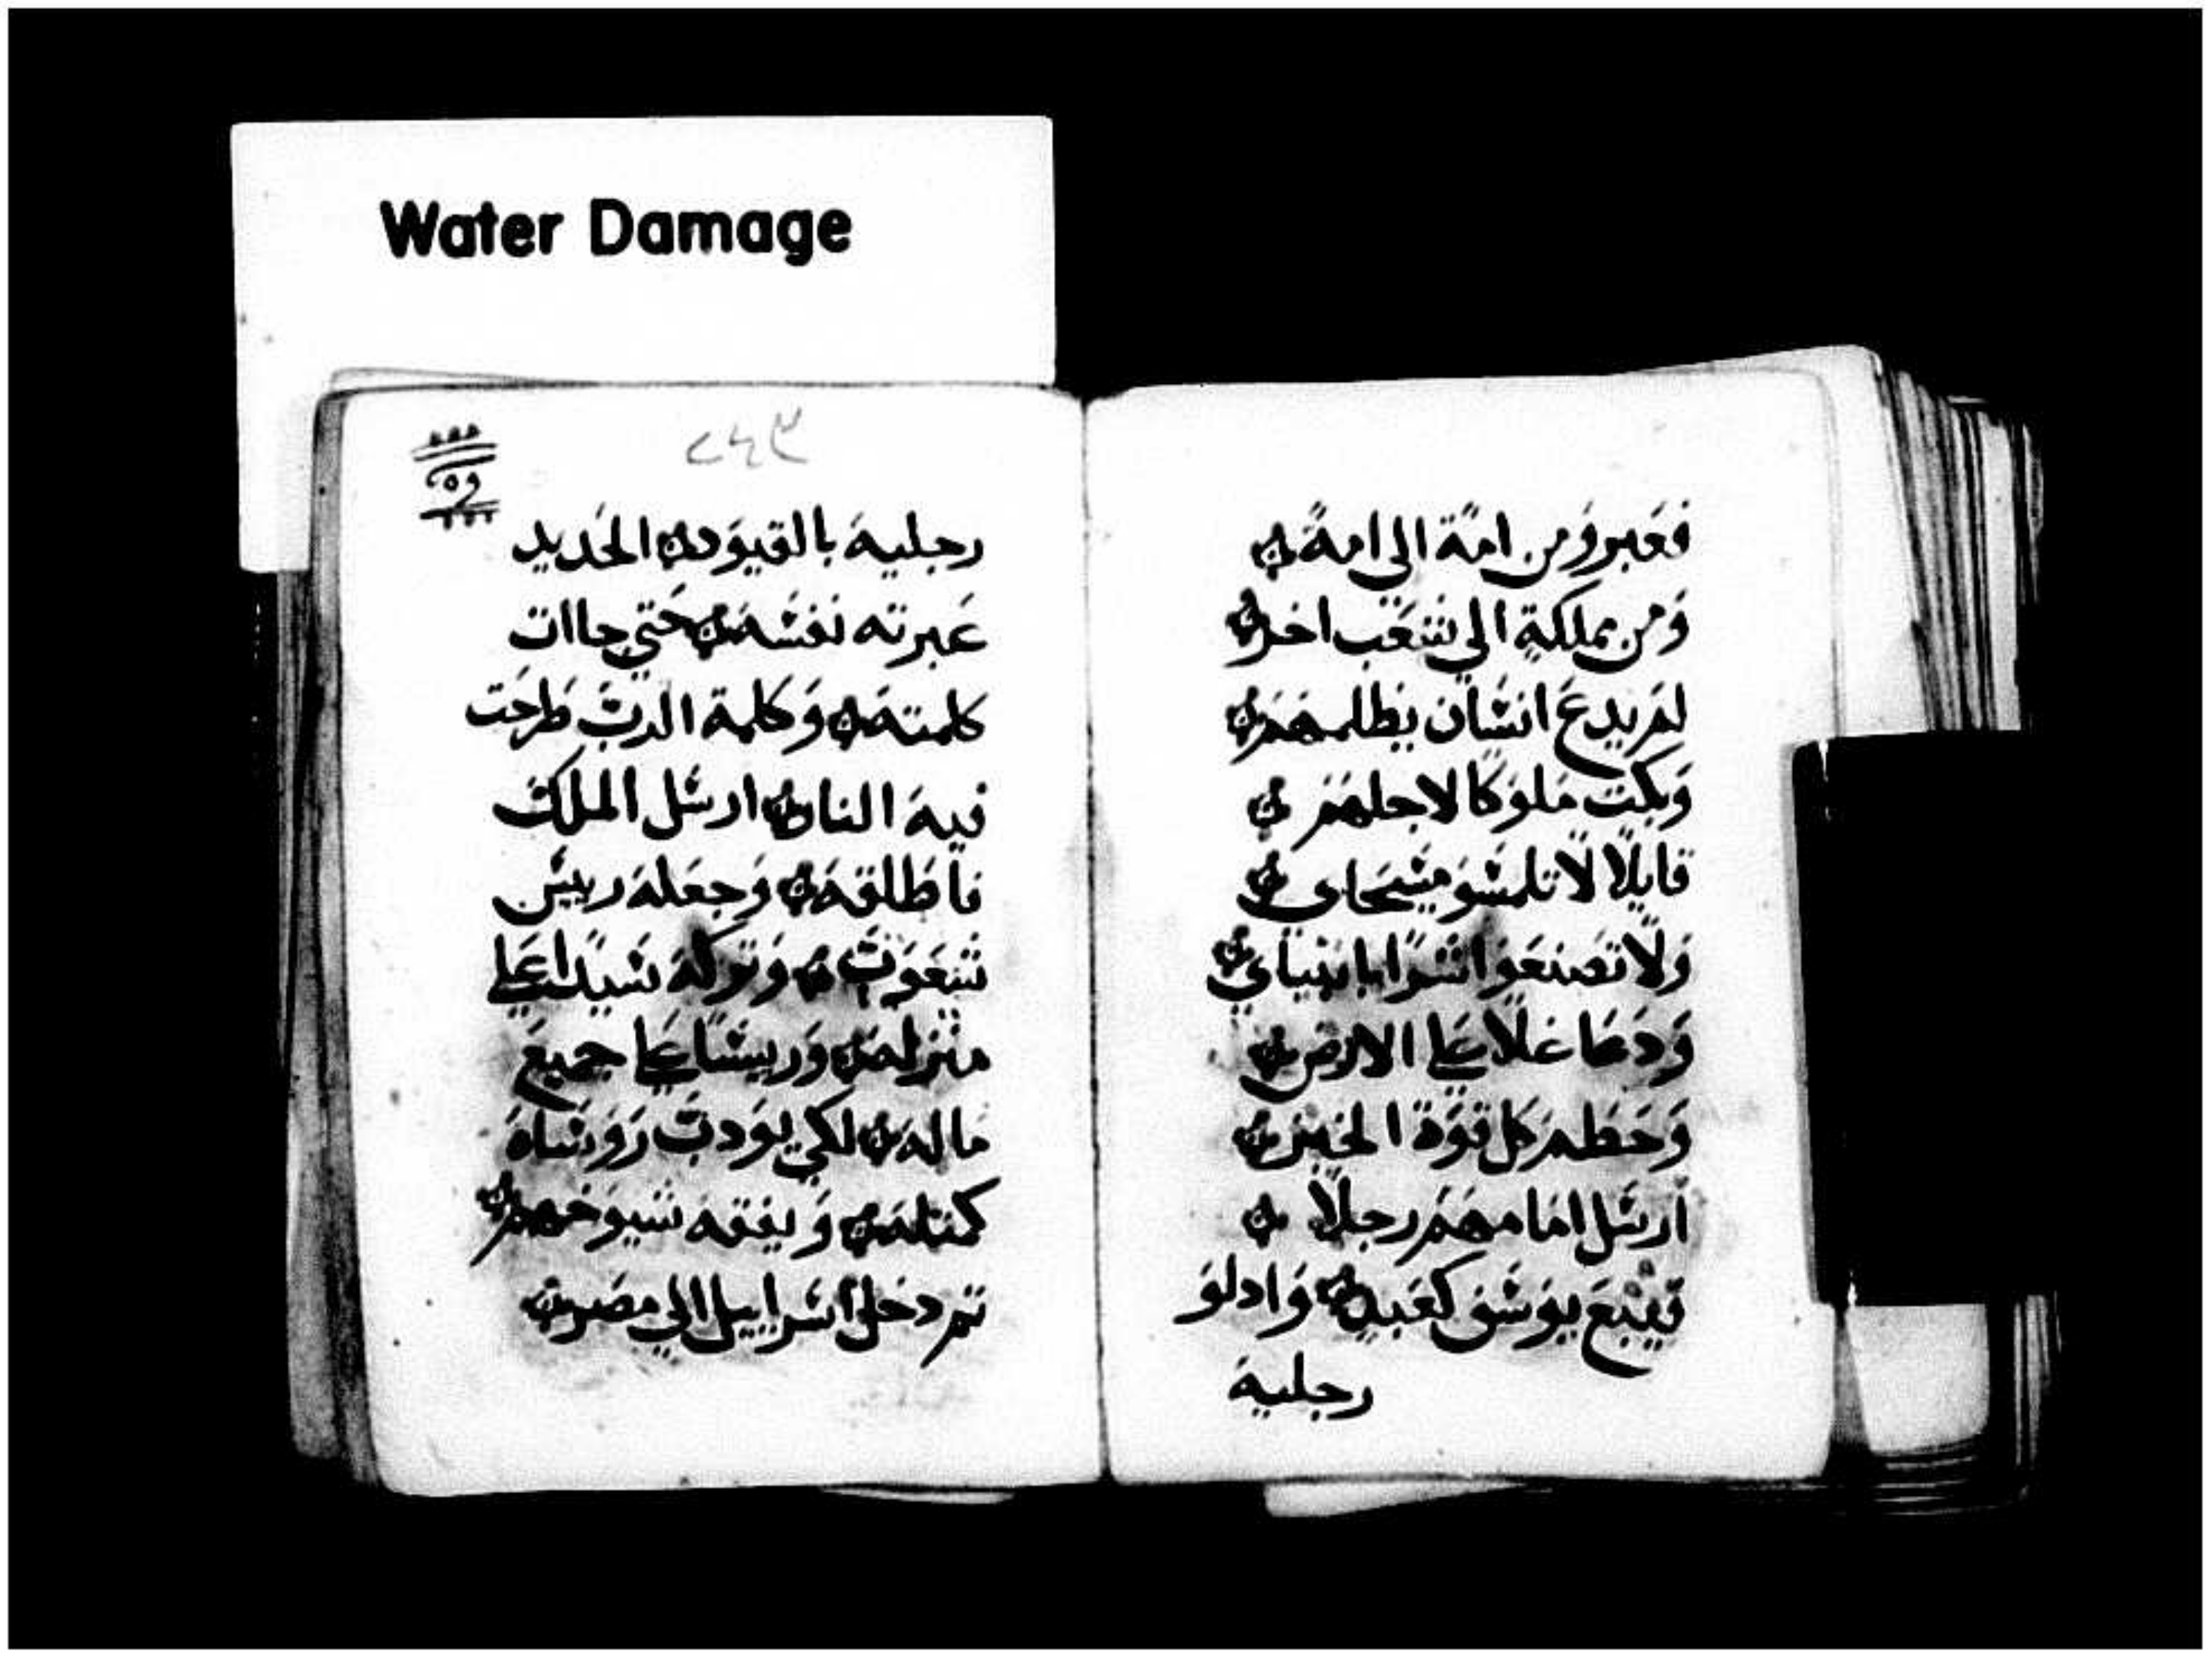 Water Damage
فعبرو من امة الي امة
ومن مملكة الي شعب اخر
لم يدع انسان يظلمهم
وبكت ملوكا لاجلهم
قايلا لا تلمسو مسحاي
ولا تصنعوا شرا بانبياي
ودعا غلا علي الارض
وحطم كل قوة الخبز
ارسل امامهم رجلا
فبيع يوسف كعبد وادلو
رجليه
٢٤٣
رجليه بالقيود الحديد
عبرته نفسه حتي جاات
كلمته وكلمة الرب طرحت
فيه النار ارسل الملك
فاطلقه وجعله رييس
شعوب وتركه سيدا علي
منزله ورييسا علي جميع
ماله لكي يودب روساه
كمثله ويفقه شيوخهم
ثم دخل اسراييل الي مصر